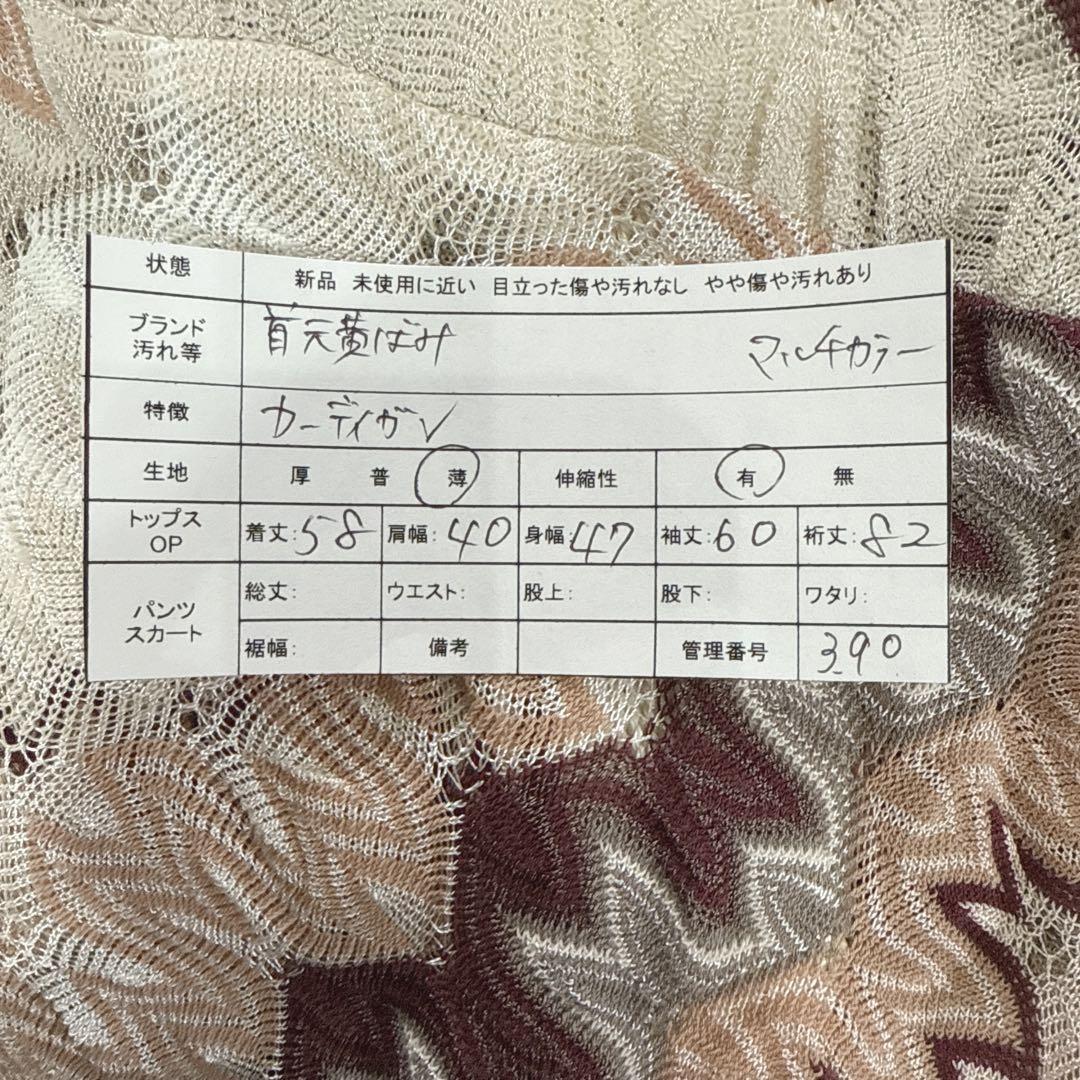 状態 新品 未使用に近い 目立った傷や汚れなし やや傷や汚れあり
ブランド 首元黄ばみ マルチカラー
汚れ等
特徴 カーディガン
生地 厚 普 薄 伸縮性 有 無
トップス OP 着丈:58 肩幅:40 身幅:47 袖丈:60 裄丈:82
パンツ スカート 総丈: ウエスト: 股上: 股下: ワタリ:
裾幅: 備考 管理番号 390